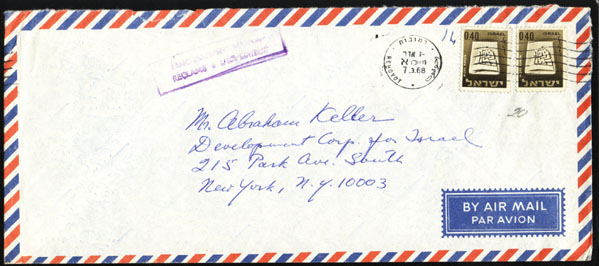 RECLAMÉ À
רחובות
REHOVOT
7.3.68
14
0.40 ISRAEL
ישראל
0.40 ISRAEL
ישראל
20
Mr. Abraham Keller
Development Corp. for Israel
215 Park Ave. South
New York, N.Y. 10003
BY AIR MAIL
PAR AVION